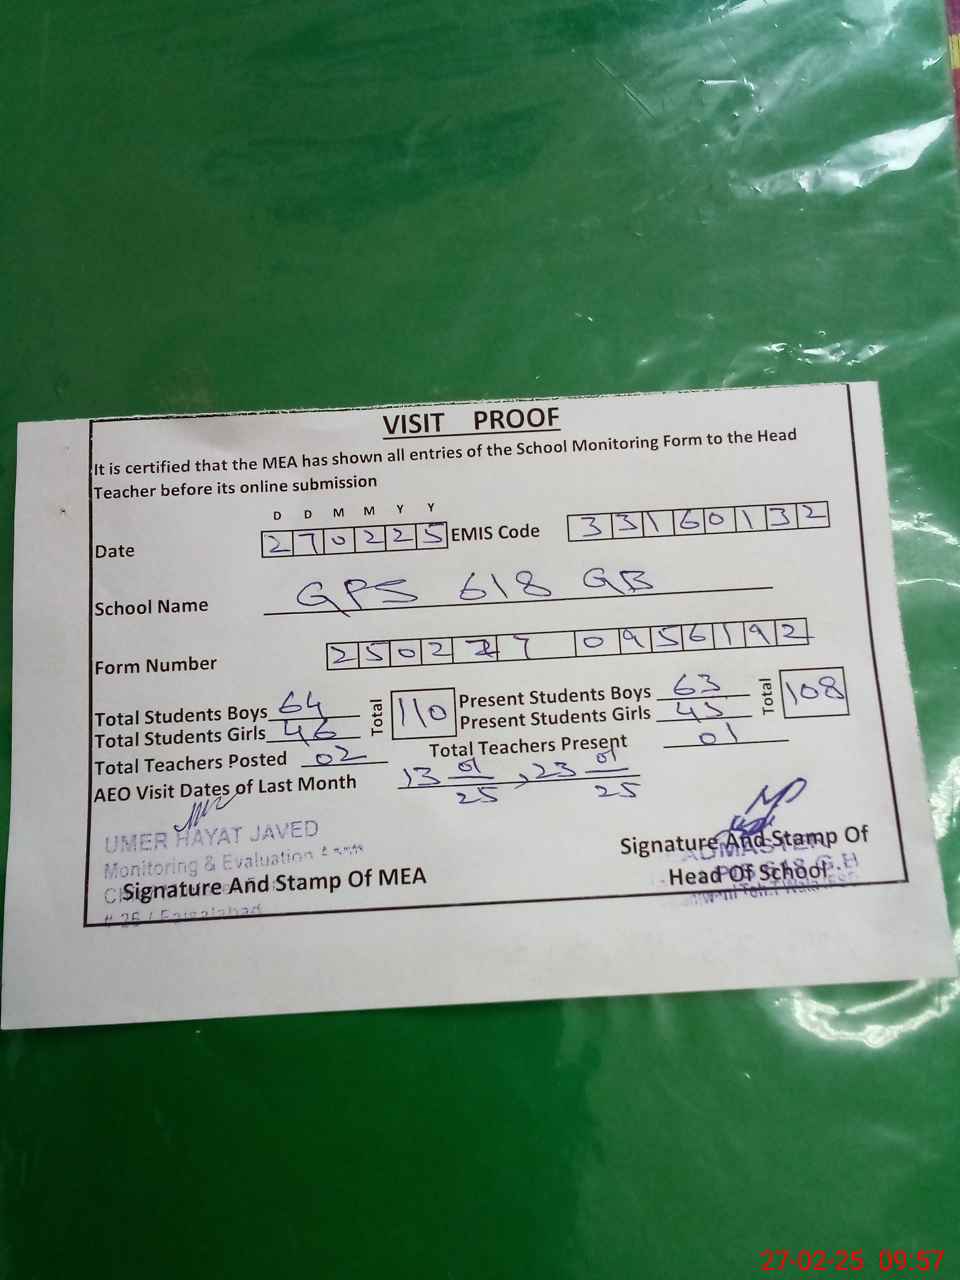 VISIT PROOF
It is certified that the MEA has shown all entries of the School Monitoring Form to the Head
Teacher before its online submission
D D M M Y Y
Date 270225 EMIS Code 33160132
School Name GPS 618 GB
Form Number 25027 7 0956192
Total Students Boys 64 Total 110 Present Students Boys 63 Total 108
Total Students Girls 46 Present Students Girls 45
Total Teachers Posted 02 Total Teachers Present 01
AEO Visit Dates of Last Month 13 01/25, 23 01/25
UMER HAYAT JAVED
Monitoring & Evaluation
Signature And Stamp Of MEA
# 26 / Faisalabad
Signature And Stamp Of
Head Of School
27-02-25 09:57